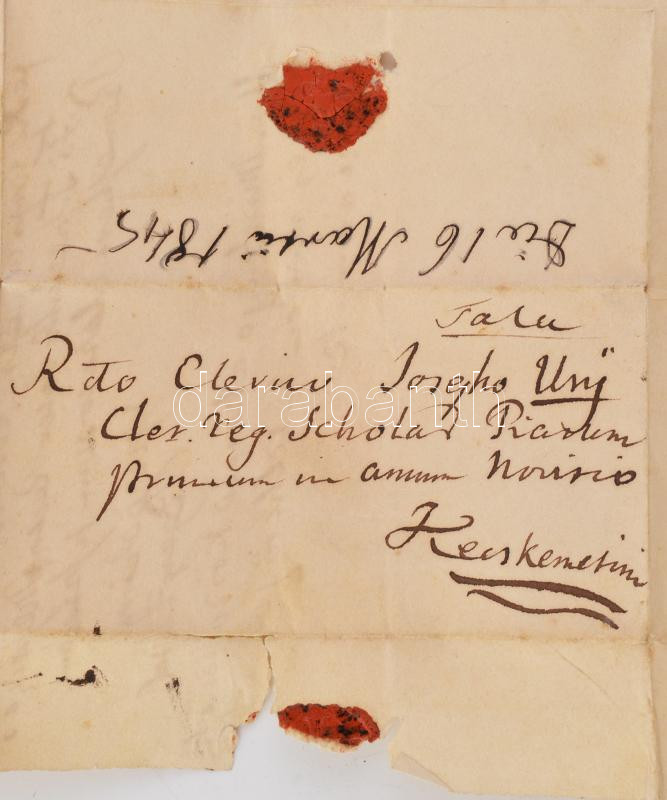 Die 16 Martii 1845
Rdo Clerico Josepho Urij
Cler. reg. Scholar Piarum
primum in annum Novitio
Kecskemetini
darabanth